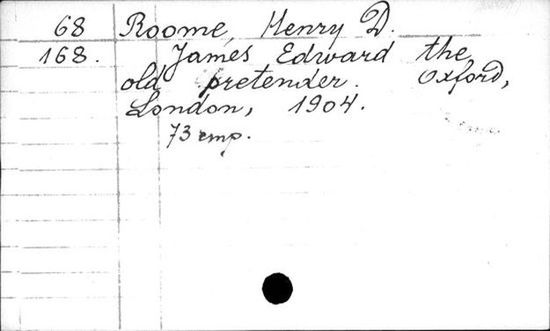 68 Roome, Henry D.
168. James Edward the
old pretender. Oxford,
London, 1904.
73